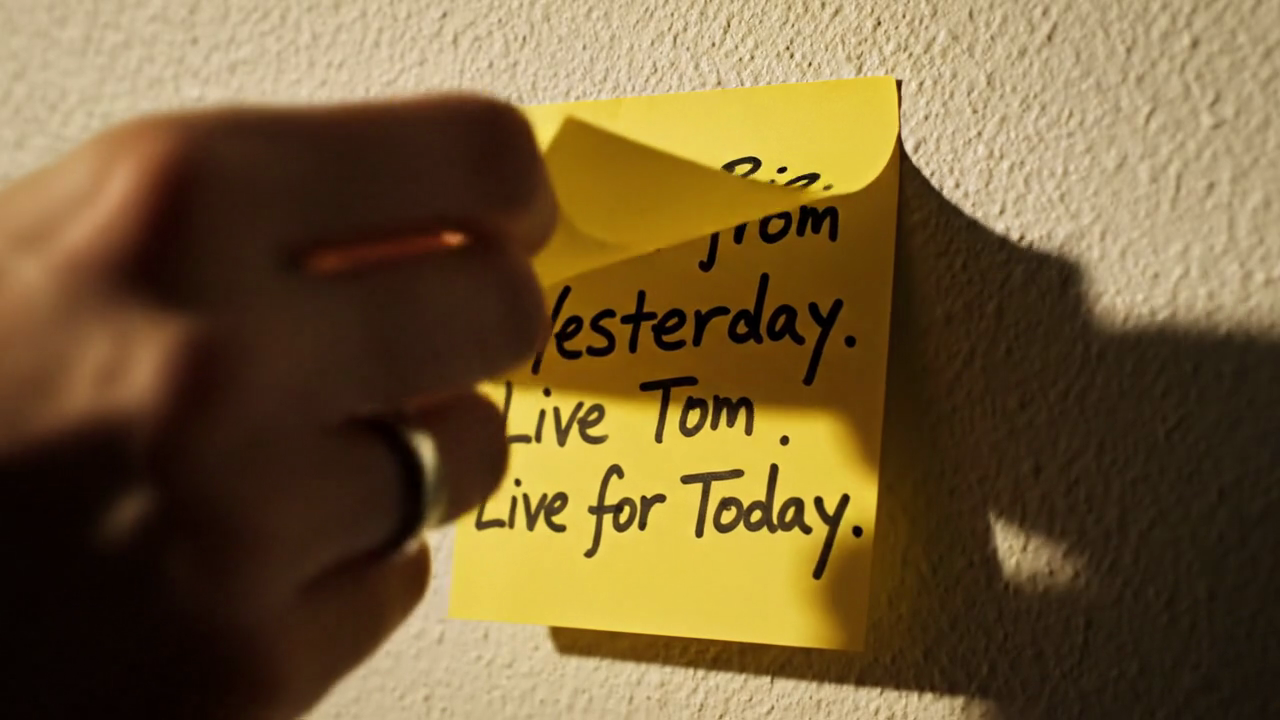 from
Yesterday.
Live Tom .
Live for Today.